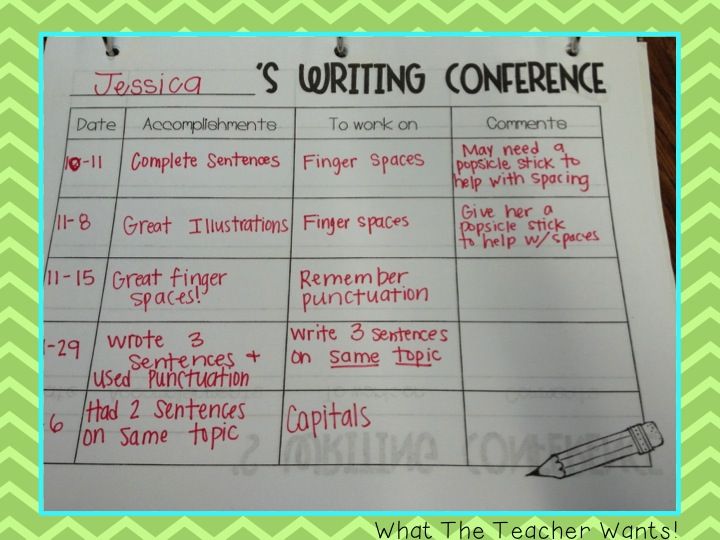 Jessica 'S WRITING CONFERENCE
Date Accomplishments To work on Comments
10-11 Complete Sentences Finger Spaces May need a
popsicle stick to
help with spacing
11-8 Great Illustrations Finger spaces Give her a
popsicle stick
to help w/spaces
11-15 Great finger
spaces!
Remember
punctuation
-29 wrote 3
sentences +
used punctuation
Write 3 sentences
on same topic
6 Had 2 sentences
on same topic
Capitals
What The Teacher Wants!